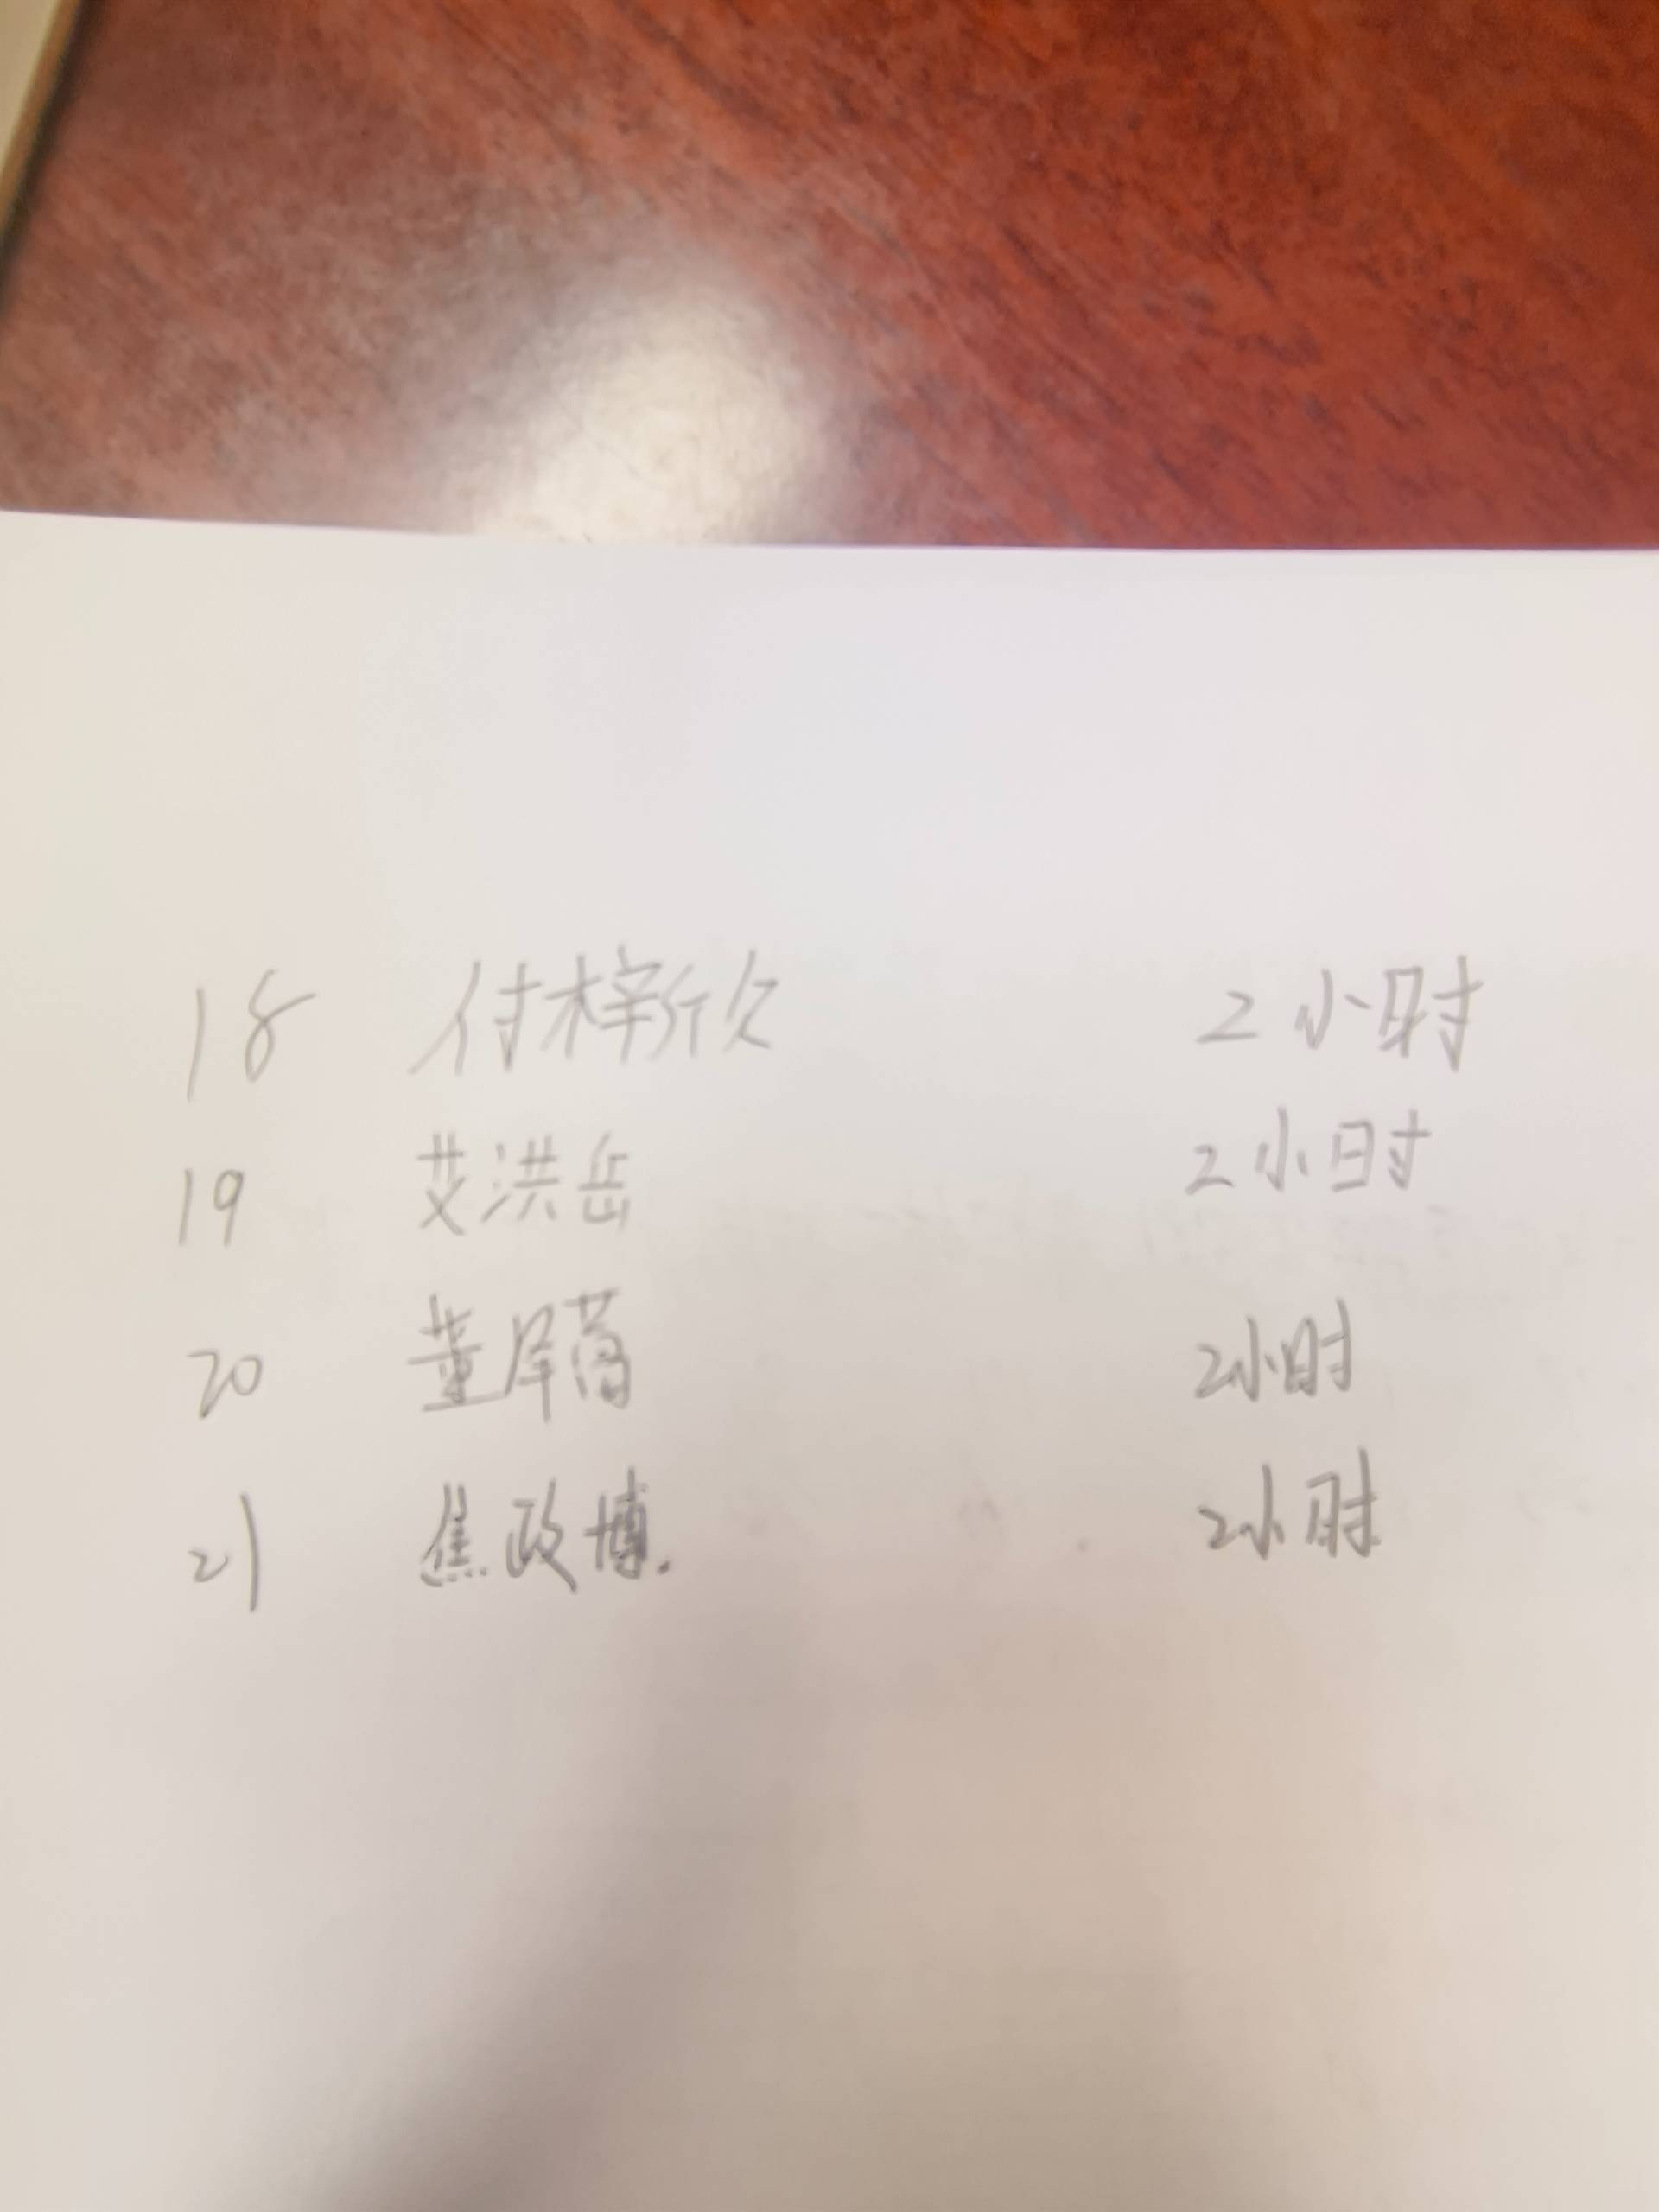 18 付梓欣 2小时
19 艾洪岳 2小时
20 董 2小时
21 焦政博. 2小时